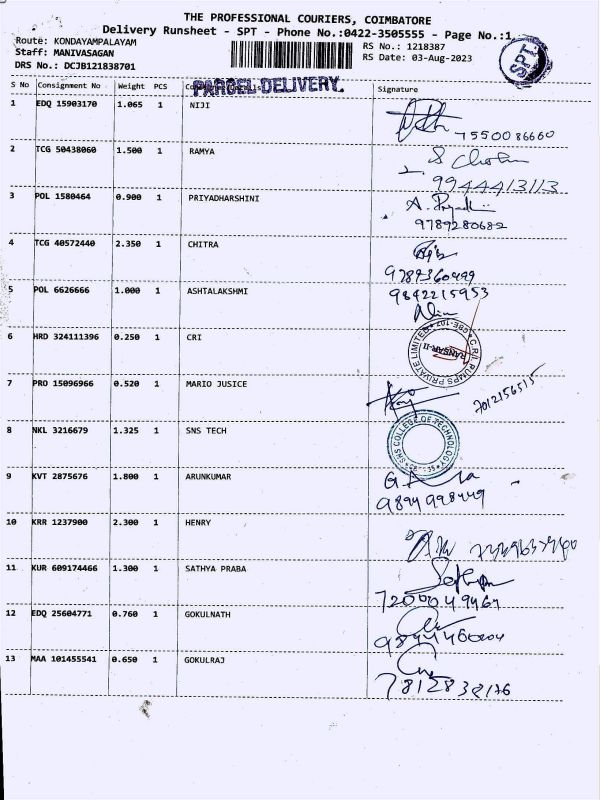 THE PROFESSIONAL COURIERS, COIMBATORE
Delivery Runsheet - SPT - Phone No.:0422-3505555 - Page No.:1
Route: KONDAYAMPALAYAM
RS No.: 1218387
Staff: MANIVASAGAN
RS Date: 03-Aug-2023
DRS No.: DCJB121838701
SPT
PARCEL DELIVERY.
S No Consignment No Weight PCS Signature
1 EDQ 15903170 1.065 1 NIJI
7550086660
2 TCG 50438060 1.500 1 RAMYA
9944413113
3 POL 1580464 0.900 1 PRIYADHARSHINI
9789280682
4 TCG 40572440 2.350 1 CHITRA
9789360499
5 POL 6626666 1.000 1 ASHTALAKSHMI
9842215953
6 HRD 324111396 0.250 1 CRI
C.R.I. PUMPS PRIVATE LIMITED
7 PRO 15096966 0.520 1 MARIO JUSICE
7012156515
8 NKL 3216679 1.325 1 SNS TECH
SNS COLLEGE OF TECHNOLOGY
9 KVT 2875676 1.800 1 ARUNKUMAR
9894998449
10 KRR 1237900 2.300 1 HENRY
11 KUR 609174466 1.300 1 SATHYA PRABA
7200049467
12 EDQ 25604771 0.760 1 GOKULNATH
13 MAA 101455541 0.650 1 GOKULRAJ
7812838176